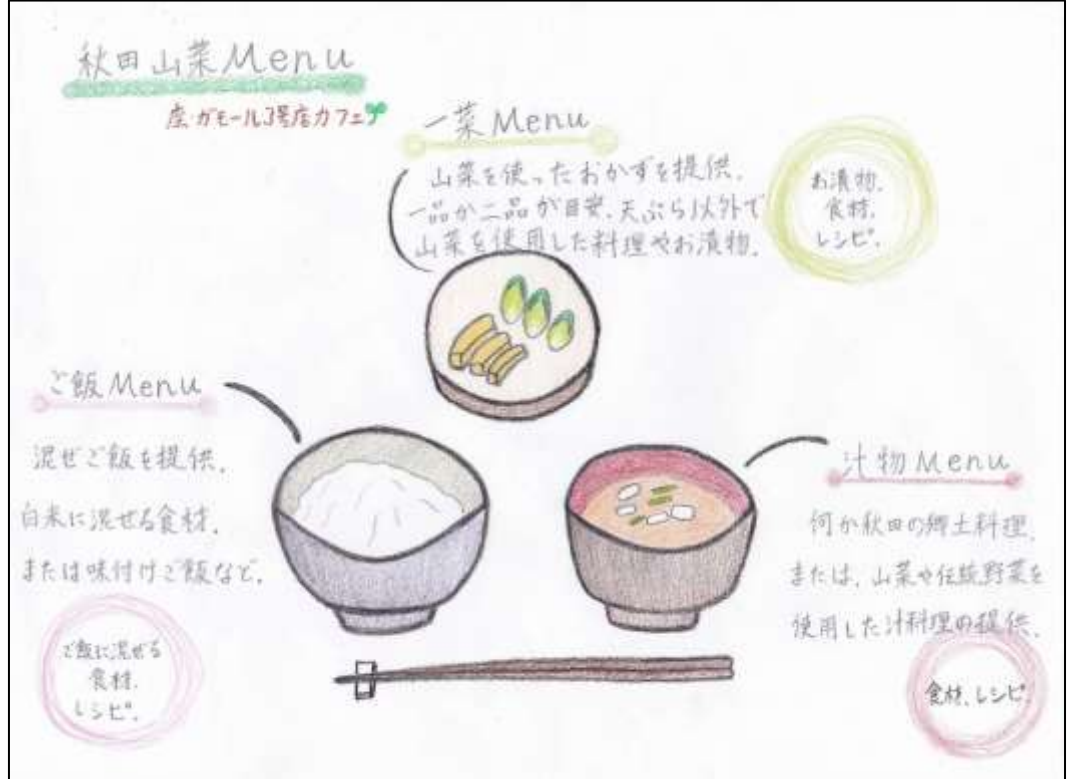 秋田山菜Menu
座・ガモール3号店カフェ
一菜Menu
山菜を使ったおかずを提供.
一品か二品が目安.天ぷら以外で
山菜を使用した料理やお漬物.
お漬物.
食材.
レシピ.
ご飯Menu
混ぜご飯を提供.
白米に混ぜる食材.
または味付けご飯など.
ご飯に混ぜる
食材.
レシピ.
汁物Menu
何か秋田の郷土料理.
または,山菜や伝統野菜を
使用した汁料理の提供.
食材.レシピ.